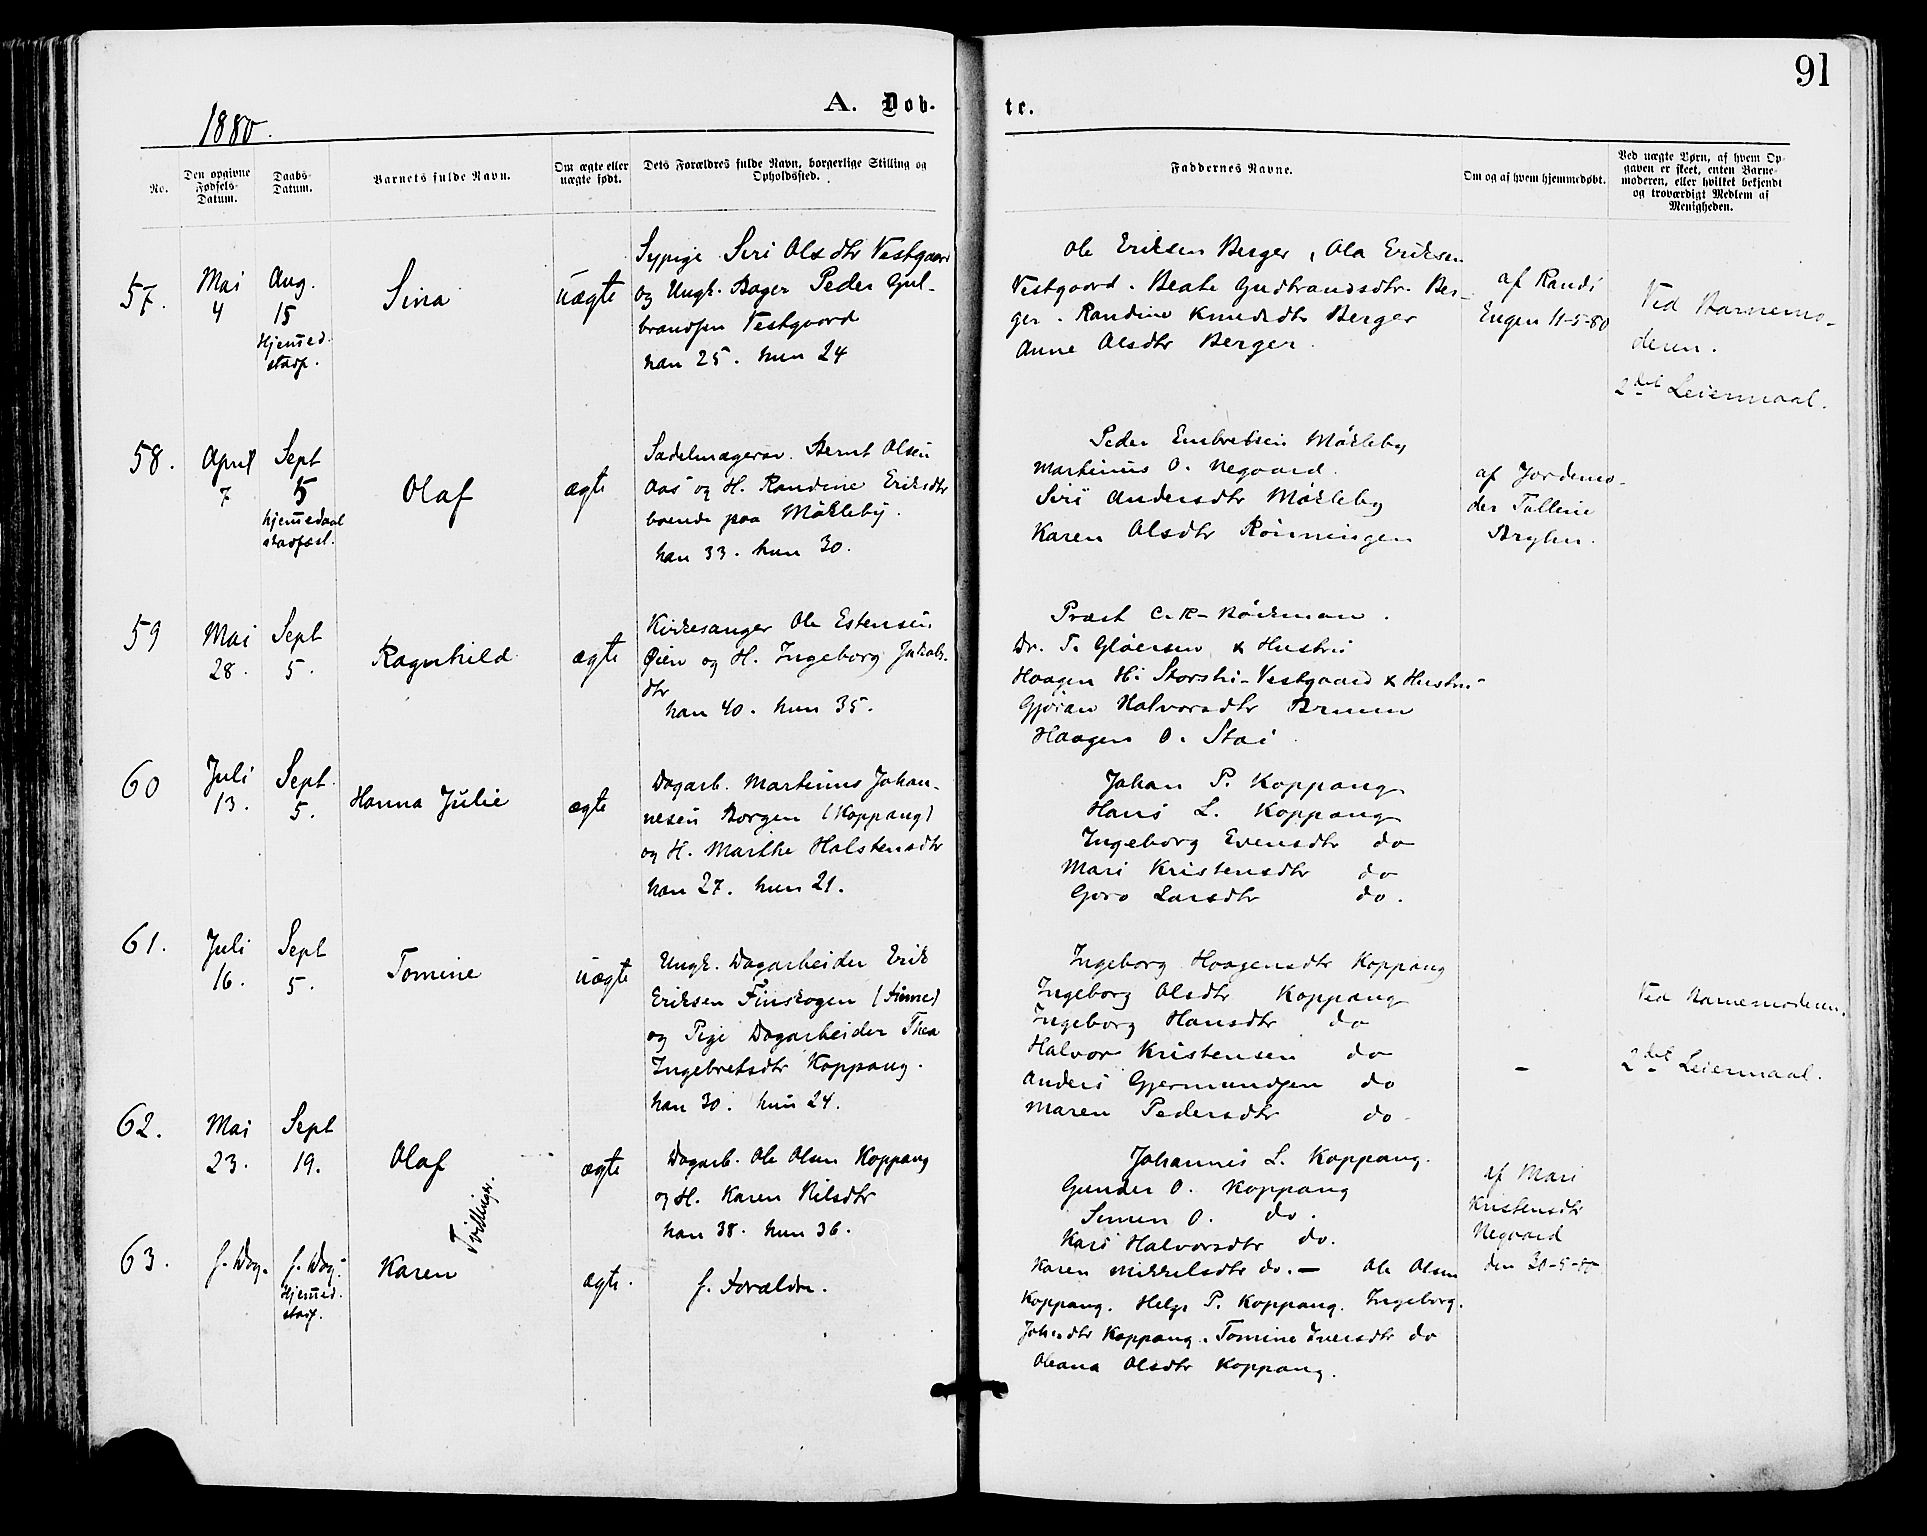 91
A. Døb-
te.
1880.
No.
Den opgivne Fødsels-Datum.
Daabs-Datum.
Barnets fulde Navn.
Om ægte eller uægte født.
Dets Forældres fulde Navn, borgerlige Stilling og Opholdssted.
Faddernes Navne.
Om og af hvem hjemmedøbt.
Ved uægte Børn, af hvem Op-
gaven er skeet, enten Barne-
moderen, eller hvilket bekjendt
og troværdigt Medlem af
Menigheden.
57.
Mai
4
Aug.
15
Hjemed.
stadf.
Sina
uægte
Sypige Siri Olsdtr Vestgaard
og Ungk. Bager Peder Gul-
brandsen Vestgaard
han 25. hun 24
Ole Eriksen Berger, Ola Eriksen
Vestgaard. Beate Gudbrandsdtr. Ber-
ger. Randine Knudsdtr Berger
Anne Olsdtr Berger.
af Randi
Engen 11-5-80
Ved Barnemo-
deren.
2det Leiermaal.
58.
April
7
Sept
5
hjemedaab
stadfæst.
Olaf
ægte
Sadelmager Bernt Olsen
Aas og H. Randine Eriksdtr
boende paa Mökleby.
han 33. hun 30.
Peder Embretsen Mökleby
Martinus O. Negaard.
Siri Andersdtr Mökleby
Karen Olsdtr Rönningen
af Jordemo-
der Talline
59
Mai
28.
Sept
5.
Ragnhild
ægte
Kirkesanger Ole Estensen
Øien og H. Ingeborg Jakobs.
dtr
han 40. hun 35.
Præst C. R. Böckman.
Dr. T. Glöersen & Hustru
Haagen H. Storsti-Vestgaard & Hustru
Gjöran Halvorsdtr Bruun
Haagen O. Stai
60
Juli
13.
Sept.
5.
Hanna Julie
ægte
Dagarb. Martinus Johan-
nesen Borgen (Koppang)
og H. Marthe Halstensdtr
han 27. hun 21.
Johan P. Koppang
Hans L. Koppang
Ingeborg Evensdtr do
Mari Kristensdtr do
Goro Larsdtr do.
61.
Juli
16.
Sept
5.
Tomine
uægte
Ungk. Dagarbeider Erik
Eriksen Finskogen (Finne)
og Pige Dagarbeider Thea
Ingebretsdtr Koppang.
han 30. hun 24.
Ingeborg Haagensdtr Koppang
Ingeborg Olsdtr Koppang
Ingeborg Hansdtr do
Halvor Kristensen do
Anders Gjermundsen do
Maren Pedersdtr do.
–
Ved Barnemoderen.
2det Leiermaal.
62.
Mai
23.
Sept
19.
Olaf
ægte
Dagarb. Ole Olsen Koppang
og H. Karen Nilsdtr
han 38. hun 36.
Johannes L. Koppang.
Gunder O. Koppang
Simen O. do.
Kari Halvorsdtr do.
af Mari
Kristensdtr
Negaard
den 30-5-80
Tvillinger.
63.
f. Dag.
f. Dag.
Hjemed.
stadf.
Karen
ægte.
f. Forældre.
Karen Mikkelsdtr do. – Ole Olsen
Koppang. Helge P. Koppang. Ingeborg
Johsdtr Koppang. Tomine Iversdtr do
Oleana Olsdtr Koppang.